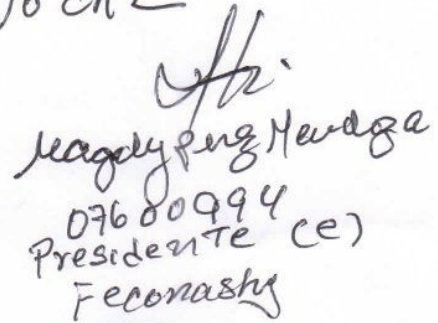 Magdy Perez Mendoza
07600994
Presidente (e)
Feconashy